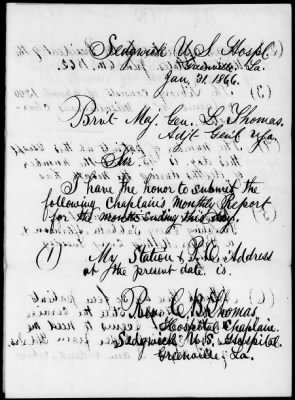 Sedgwick U.S. Hospl.
Greenville, La.
Jan. 31. 1866.
Brvt Maj. Gen. L. Thomas.
Adjt Genl
Sir
I have the honor to submit the
following Chaplain's Monthly Report
for the month ending this day.
(1) My Station & P.O. Address
at the present date is.
Rev. C. B. Thomas
Hospital Chaplain.
Sedgwick U.S. Hospital
Greenville, La.